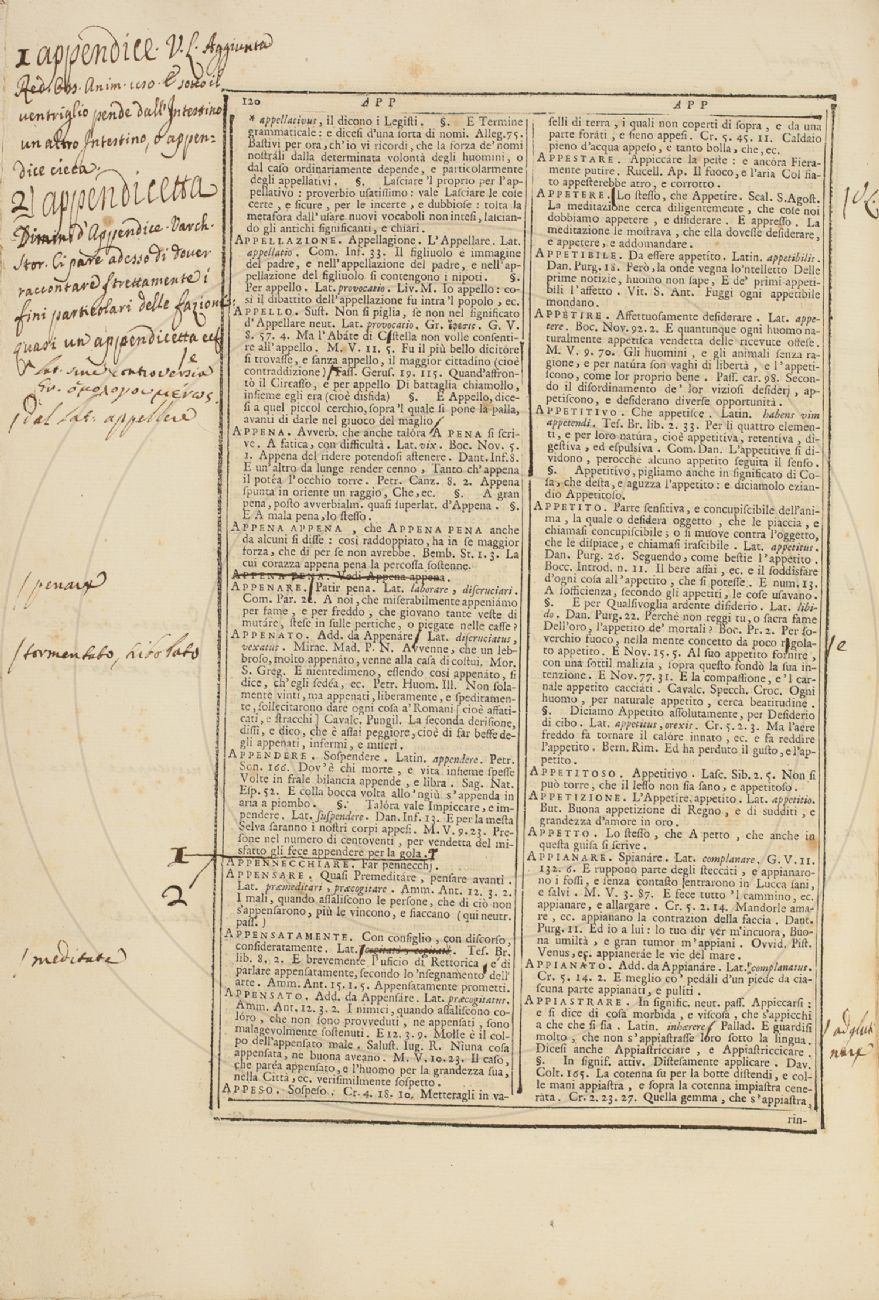 1 appendice. V. L. Aggiunta
Red. Oss. Anim. 120. E sotto il
ventriglio pende dall'Intestino
un altro Intestino, o appen-
dice cieca,
2 appendicetta
Dimin. d'Appendice. Varch.
Stor. Ci pare adesso di dover
raccontare strettamente i
fini particolari delle fazioni:
quasi un appendicetta ec.
Lat. sine controversia
Gr.
dal Lat. appellere
penare
tormentato,
1
2
meditate
120 APP
* appellativus, il dicono i Legisti. §. E Termine
grammaticale: e dicesi d'una sorta di nomi. Alleg. 75.
Bastivi per ora, ch'io vi ricordi, che la forza de' nomi
nostrali dalla determinata volontà degli huomini, o
dal caso ordinariamente depende, e particolarmente
degli appellativi. §. Lasciare 'l proprio per l'ap-
pellativo: proverbio usatissimo: vale Lasciare le cose
certe, e sicure, per le incerte, e dubbiose: tolta la
metafora dall'usare nuovi vocaboli non intesi, lascian-
do gli antichi significanti, e chiari.
APPELLAZIONE. Appellagione. L'Appellare. Lat.
appellatio. Com. Inf. 33. Il figliuolo è immagine
del padre, e nell'appellazione del padre, e nell'ap-
pellazione del figliuolo si contengono i nipoti. §.
Per appello. Lat. provocatio. Liv. M. Io appello: co-
sì il dibattito dell'appellazione fu intra 'l popolo, ec.
APPELLO. Sust. Non si piglia, se non nel significato
d'Appellare neut. Lat. provocatio, Gr. G. V.
8. 57. 4. Ma l'Abáte di Castella non volle consenti-
re all'appello. M. V. 11. 5. Fu il più bello dicitore
si trovasse, e sanza appello, il maggior cittadino (cioè
contraddizione) Tass. Gerus. 19. 115. Quand'affron-
tò il Circasso, e per appello Di battaglia chiamollo,
insieme egli era (cioè disfida) §. E Appello, dice-
si a quel piccol cerchio, sopra 'l quale si pone la palla,
avanti di darle nel giuoco del maglio
APPENA. Avverb. che anche talóra A PENA si scri-
ve. A fatica, con difficultà. Lat. vix. Boc. Nov. 5.
1. Appena del ridere potendosi astenere. Dant. Inf. 8.
E un'altro da lunge render cenno, Tanto ch'appena
il potéa l'occhio torre. Petr. Canz. 8. 2. Appena
spunta in oriente un raggio, Che, ec. §. A gran
pena, posto avverbialm. quasi superlat. d'Appena. §.
E A mala pena, lo stesso.
APPENA APPENA, che APPENA PENA anche
da alcuni si disse: così raddoppiato, ha in se maggior
forza, che di per se non avrebbe. Bemb. St. 1. 3. La
cui corazza appena pena la percossa sostenne.
APPENA PENA. Vedi Appena appena.
APPENARE. Patir pena. Lat. laborare, discruciari.
Com. Par. 2. A noi, che miserabilmente appeniámo
per fame, e per freddo, che giovano tante veste di
mutáre, stese in sulle pertiche, o piegate nelle casse?
APPENATO. Add. da Appenáre Lat. discruciatus,
vexatus. Mirac. Mad. P. N. Avvenne, che un leb-
broso, molto appenáto, venne alla casa di costui. Mor.
S. Greg. E nientedimeno, essendo così appenáto, si
dice, ch'egli sedéa, ec. Petr. Huom. Ill. Non sola-
mente vinti, ma appenati, liberamente, e speditamen-
te, sollecitarono dare ogni cosa a' Romani [cioè affati-
cati, e stracchi] Cavalc. Pungil. La seconda derisione,
dissi, e dico, che è assai peggiore, cioè di far beffe de-
gli appenati, infermi, e miseri.
APPENDERE. Sospendere. Latin. appendere. Petr.
Son. 166. Dov'è chi morte, e vita insieme spesse
Volte in frale bilancia appende, e libra. Sag. Nat.
Esp. 52. E colla bocca volta allo 'ngiù s'appenda in
aria a piombo. §. Talóra vale Impiccare, e im-
pendere. Lat. suspendere. Dan. Inf. 13. E per la mesta
Selva saranno i nostri corpi appesi. M. V. 9. 23. Pre-
sone nel numero di centoventi, per vendetta del mi-
sfatto gli fece appendere per la gola.
APPENNECCHIARE. Far pennecchj.
APPENSARE. Quasi Premeditáre, pensare avanti.
Lat. præmeditari, præcogitare. Amm. Ant. 12. 3. 2.
I mali, quando assaliscono le persone, che di ciò non
s'appensarono, più le vincono, e fiaccano (qui neutr.
pass.)
APPENSATAMENTE. Con consiglio, con discorso,
consideratamente. Lat. Tes. Br.
lib. 8. 2. E brevemente l'uficio di Rettorica, è di
parlare appensatamente, secondo lo 'nsegnamento dell'
arte. Amm. Ant. 15. 1. 5. Appensatamente prometti.
APPENSATO. Add. da Appensáre. Lat. præcogitatus.
Amm. Ant. 12. 3. 2. I nimici, quando assaliscono co-
lóro, che non sono provveduti, ne appensati, sono
malagevolmente sostenuti. E 12. 3. 9. Molle è il col-
po dell'appensato male. Salust. Iug. R. Niuna cosa
appensata, ne buona aveano. M. V. 10. 23. Il caso,
che paréa appensato, e l'huomo per la grandezza sua,
nella Città, ec. verisimilmente sospetto.
APPESO. Sospeso. Cr. 4. 18. 10. Metteragli in va-
APP
selli di terra, i quali non coperti di sopra, e da una
parte foráti, e sieno appesi. Cr. 5. 45. 11. Caldaio
pieno d'acqua appeso, e tanto bolla, che, ec.
APPESTARE. Appiccáre la peste: e ancóra Fiera-
mente putire. Rucell. Ap. Il fuoco, e l'aria Col fia-
to appesterebbe atro, e corrotto.
APPETERE. Lo stesso, che Appetire. Scal. S. Agost.
La meditazione cerca diligentemente, che cose noi
dobbiamo appetere, e disiderare. E appresso. La
meditazione le mostrava, che ella dovesse desiderare,
e appetere, e addomandare.
APPETIBILE. Da essere appetito. Latin. appetibilis.
Dan. Purg. 18. Però, la onde vegna lo 'ntelletto Delle
prime notizie, huomo non sape, E de' primi appeti-
bili l'affetto. Vit. S. Ant. Fuggi ogni appetibile
mondano.
APPETIRE. Affettuosamente desiderare. Lat. appe-
tere. Boc. Nov. 92. 2. E quantunque ogni huomo na-
turalmente appetisca vendetta delle ricevute offese.
M. V. 9. 70. Gli huomini, e gli animali senza ra-
gione, e per natúra son vaghi di libertà, e l'appeti-
scono, come lor proprio bene. Pass. car. 98. Secon-
do il disordinamento de' lor viziosi desiderj, ap-
petiscono, e desiderano diverse opportunità.
APPETITIVO. Che appetisce. Latin. habens vim
appetendi. Tes. Br. lib. 2. 33. Per li quattro elemen-
ti, e per loro natúra, cioè appetitiva, retentiva, di-
gestiva, ed espulsiva. Com. Dan. L'appetitive si di-
vidono, perocchè alcuno appetito seguita il senso.
§. Appetitivo, pigliamo anche in significato di Co-
sa, che desta, e aguzza l'appetito: e diciamolo ezian-
dio Appetitoso.
APPETITO. Parte sensitiva, e concupiscibile dell'ani-
ma, la quale o desidera oggetto, che le piaccia, e
chiamasi concupiscibile; o si muove contra l'oggetto,
che le dispiace, e chiamasi irascibile. Lat. appetitus.
Dan. Purg. 26. Seguendo, come bestie l'appetito.
Bocc. Introd. n. 11. Il bere assai, ec. e il soddisfare
d'ogni cosa all'appetito, che si potesse. E num. 13.
A sofficienza, secondo gli appetiti, le cose usavano.
§. E per Qualsivoglia ardente disiderio. Lat. libi-
do. Dan. Purg. 22. Perchè non reggi tu, o sacra fame
Dell'oro, l'appetito de' mortali? Boc. Pr. 2. Per so-
verchio fuoco, nella mente concetto da poco rgola-
to appetito. E Nov. 15. 5. Al suo appetito fornire,
con una sottil malizia, sopra questo fondò la sua in-
tenzione. E Nov. 77. 31. E la compassione, e 'l car-
nale appetito cacciáti. Cavalc. Specch. Croc. Ogni
huomo, per naturale appetito, cerca beatitudine.
§. Diciamo Appetito assolutamente, per Desiderio
di cibo. Lat. appetitus, orexis. Cr. 5. 2. 3. Ma l'aére
freddo fa tornare il calóre innato, ec. e fa reddire
l'appetito. Bern. Rim. Ed ha perduto il gusto, e l'ap-
petito.
APPETITOSO. Appetitivo. Lasc. Sib. 2. 5. Non si
può torre, che il lesso non sia sano, e appetitoso.
APPETIZIONE. L'Appetire, appetito. Lat. appetitio.
But. Buona appetizione di Regno, e di sudditi, e
grandezza d'amore in oro.
APPETTO. Lo stesso, che A petto, che anche in
questa guisa si scrive.
APPIANARE. Spianáre. Lat. complanare. G. V. 11.
132. 6. E ruppono parte degli steccáti, e appianaro-
no i fossi, e senza contasto entrarono in Lucca sani,
e salvi. M. V. 3. 87. E fece tutto 'l cammino, ec.
appianare, e allargare. Cr. 5. 2. 14. Mandorle ama-
re, ec. appianano la contrazion della faccia. Dant.
Purg. 11. Ed io a lui: lo tuo dir ver m'incuora, Buo-
na umiltà, e gran tumor m'appiani. Ovvid. Pist.
Venus, ec. appianeráe le vie del mare.
APPIANATO. Add. da Appianáre. Lat. complanatus.
Cr. 5. 14. 2. E meglio co' pedáli d'un piede da cia-
scuna parte appianati, e puliti.
APPIASTRARE. In signific. neut. pass. Appiccarsi:
e si dice di cosa morbida, e viscosa, che s'appicchi
a che che si sia. Latin. inhærere Pallad. E guardisi
molto, che non s'appiastrasse loro sotto la lingua.
Dicesi anche Appiastricciare, e Appiastriccicare.
§. In signif. attiv. Distesamente applicare. Dav.
Colt. 165. La cotenna su per la botte distendi, e col-
le mani appiastra, e sopra la cotenna impiastra cene-
ráta. Cr. 2. 23. 27. Quella gemma, che s'appiastra,
rin-
V. L.
e
adglut
nare